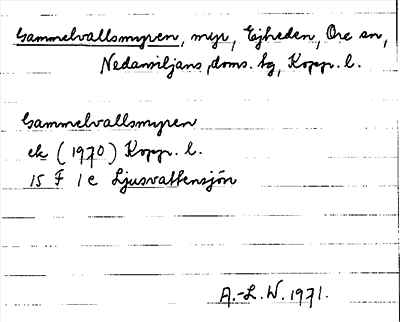 Gammelvallsmyren, myr, Ejheden, Ore sn,
Nedansiljans doms. hg, Kopp. l.
Gammelvallsmyren
ek (1970) Kopp. l.
15 F 1 e Ljusvattensjön
A.-L. W. 1971.